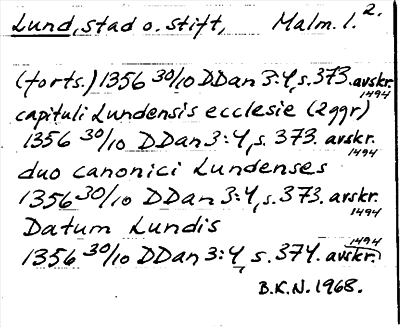 Lund, stad o. stift, Malm. l. 2.
(forts.) 1356 30/10 DDan 3:4, s. 373. avskr. 1494
capituli Lundensis ecclesie (2 ggr)
1356 30/10 DDan 3:4, s. 373. avskr. 1494
duo canonici Lundenses
1356 30/10 DDan 3:4, s. 373. avskr. 1494
Datum Lundis
1356 30/10 DDan 3:4, s. 374. avskr. 1494
B.K.N. 1968.